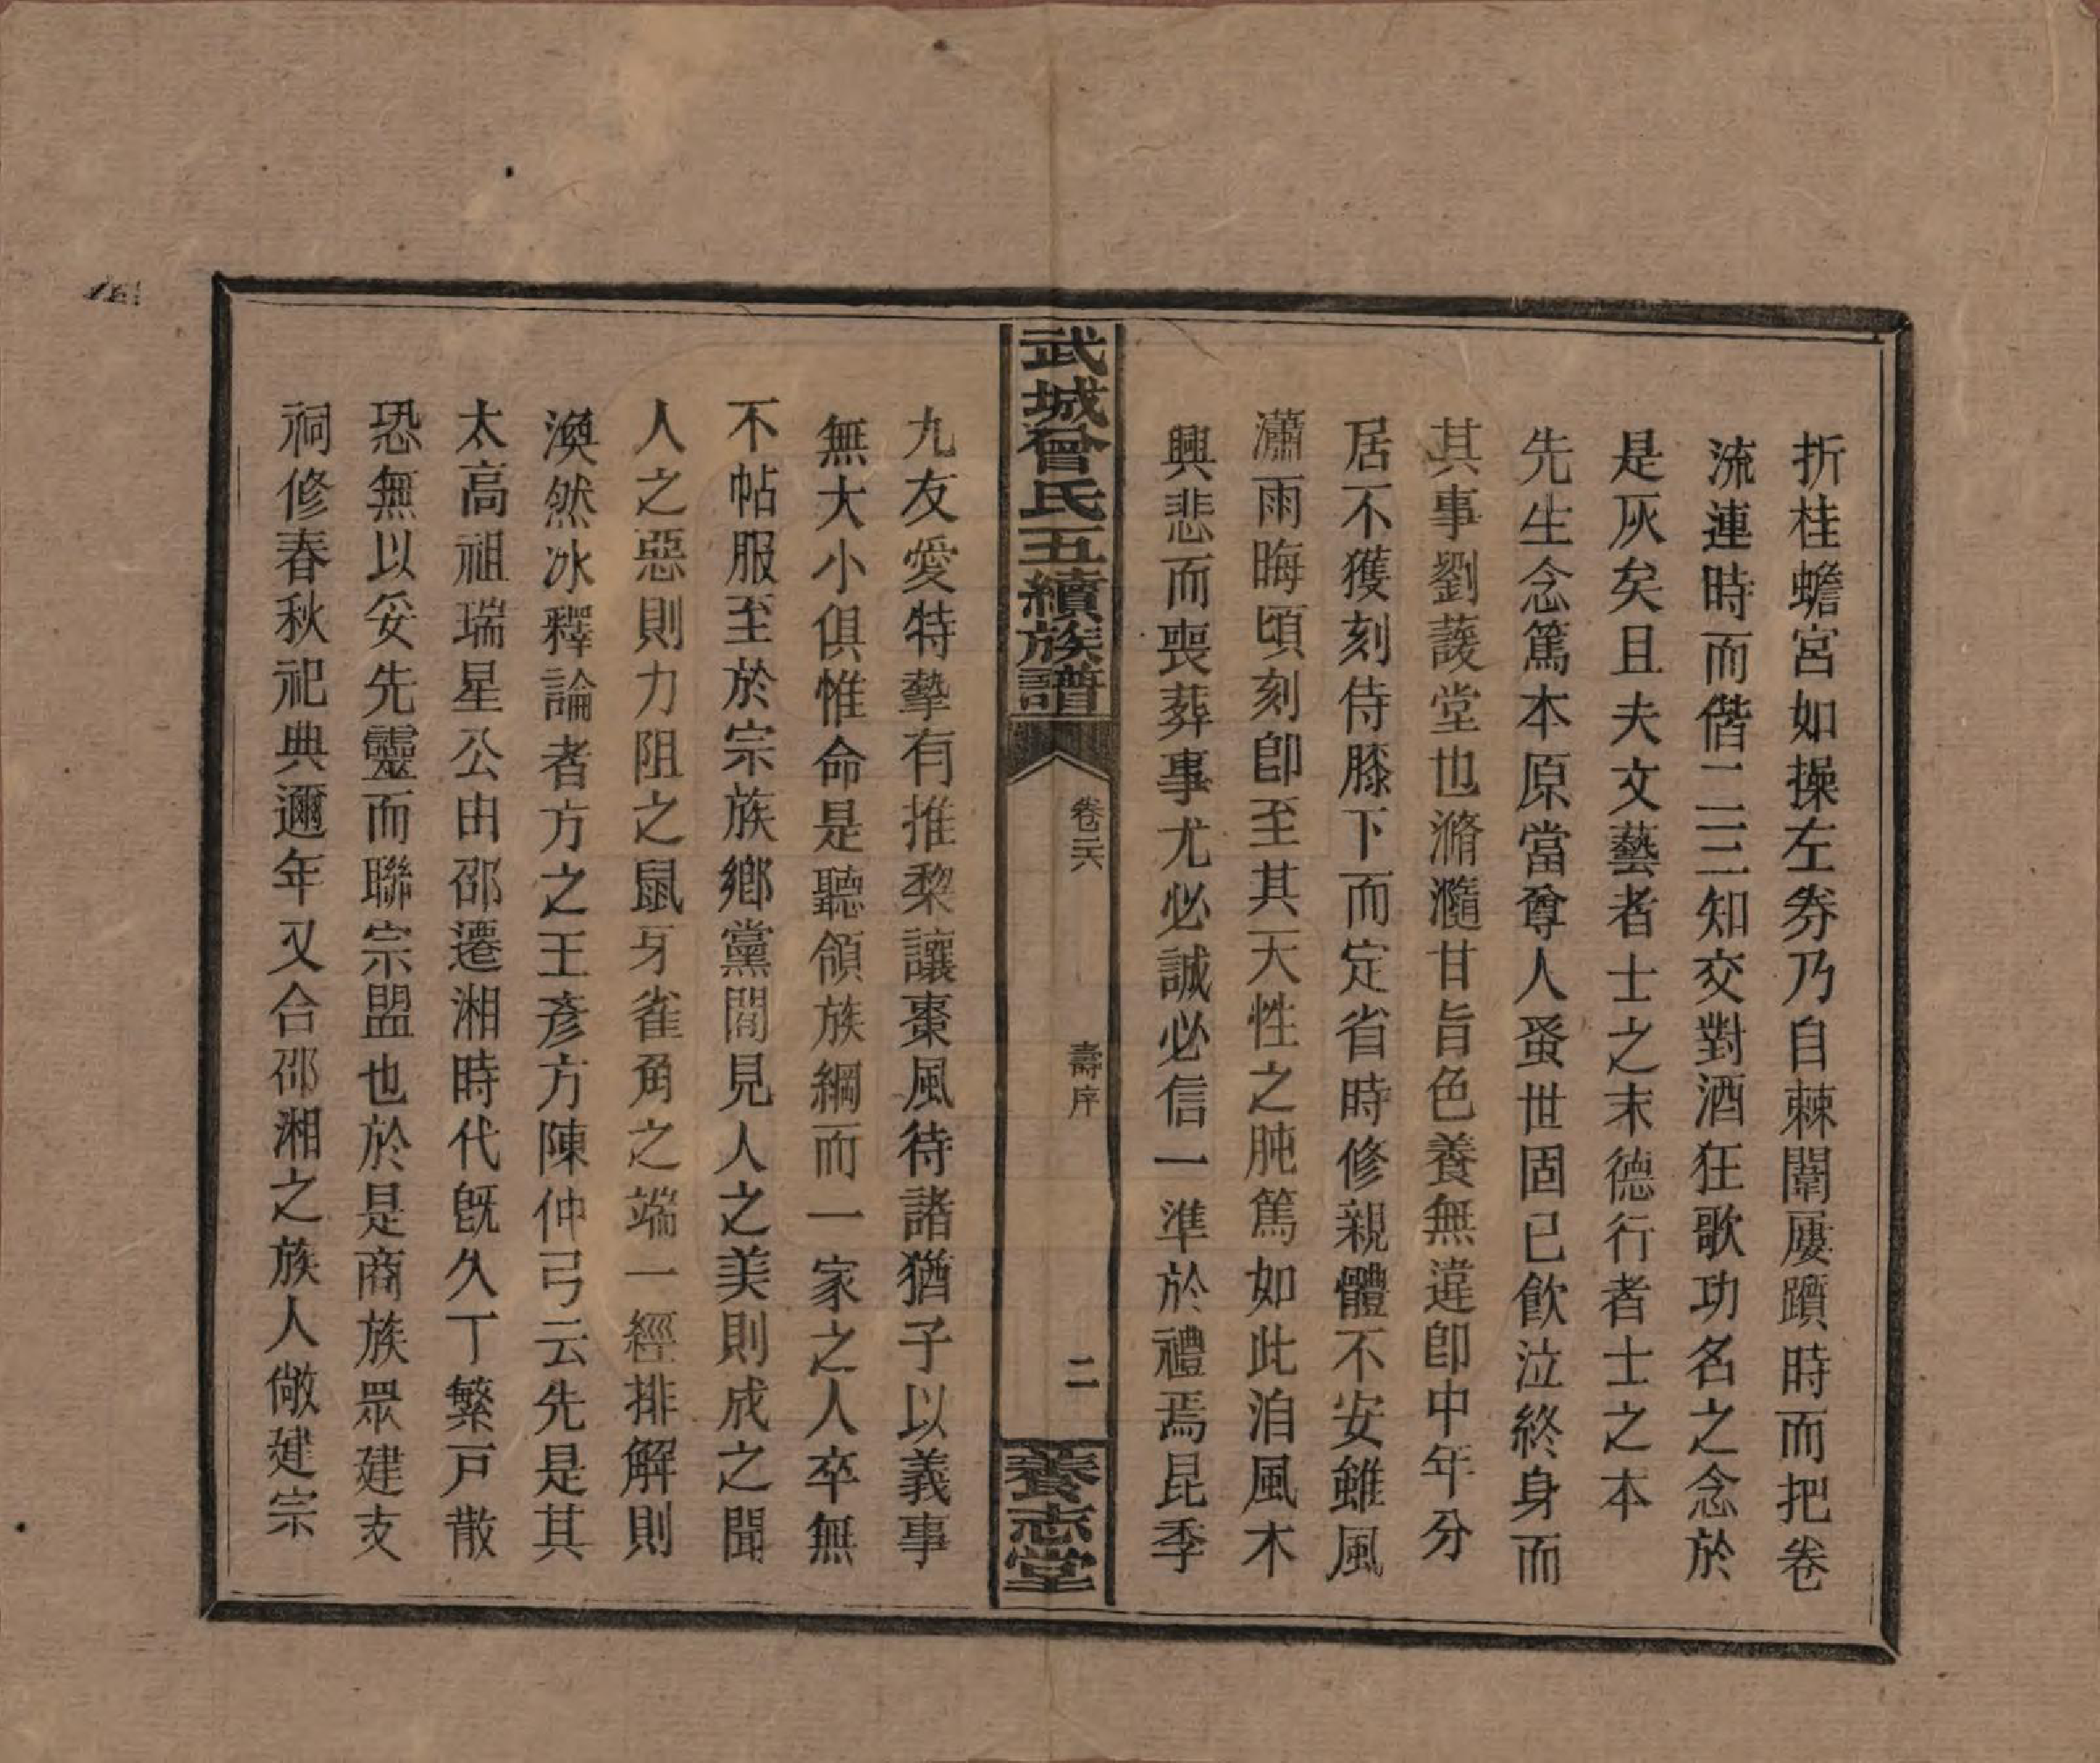 折桂蟾宮如操左券乃自棘闈屢躓時而把卷
流連時而偕二三知交對酒狂歌功名之念於
是灰矣且夫文藝者士之末德行者士之本
先生念篤本原當尊人蚤世固已飮泣終身而
其事劉護堂也滫瀡甘旨色養無違卽中年分
居不獲刻侍膝下而定省時修親體不安雖風
瀟雨晦頃刻卽至其天性之肫篤如此洎風木
興悲而喪葬事尤必誠必信一準於禮焉昆季
武城曾氏五續族譜
卷三六
壽序
二
養志堂
九友愛特摯有推棃讓棗風待諸猶子以義事
無大小俱惟命是聽領族綱而一家之人卒無
不帖服至於宗族鄉黨間見人之美則成之聞
人之惡則力阻之鼠牙雀角之端一經排解則
渙然冰釋論者方之王彥方陳仲弓云先是其
太高祖瑞星公由邵遷湘時代旣久丁繁戸散
恐無以妥先靈而聯宗盟也於是商族眾建支
祠修春秋祀典邇年又合邵湘之族人敞建宗